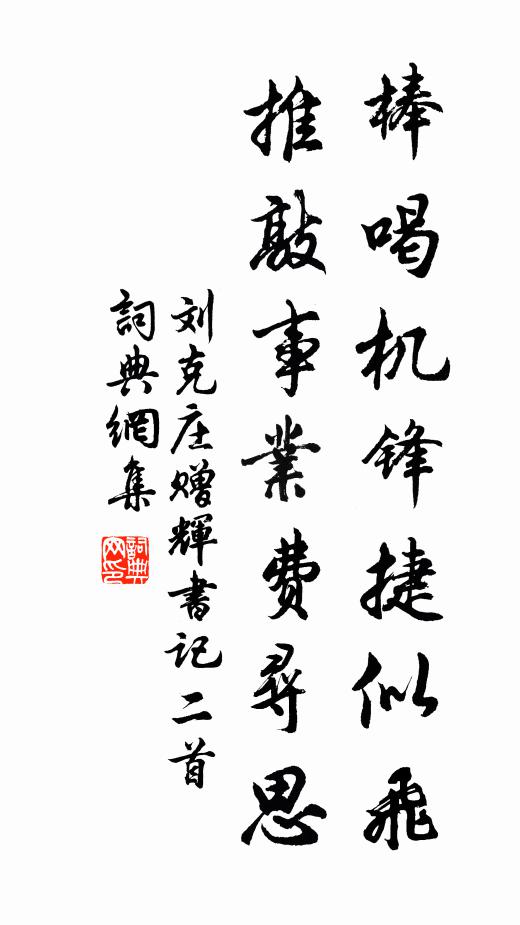 棒喝机锋捷似飞
推敲事業费尋思
刘克庄赠輝書记二首
詞典網集
詞典网印